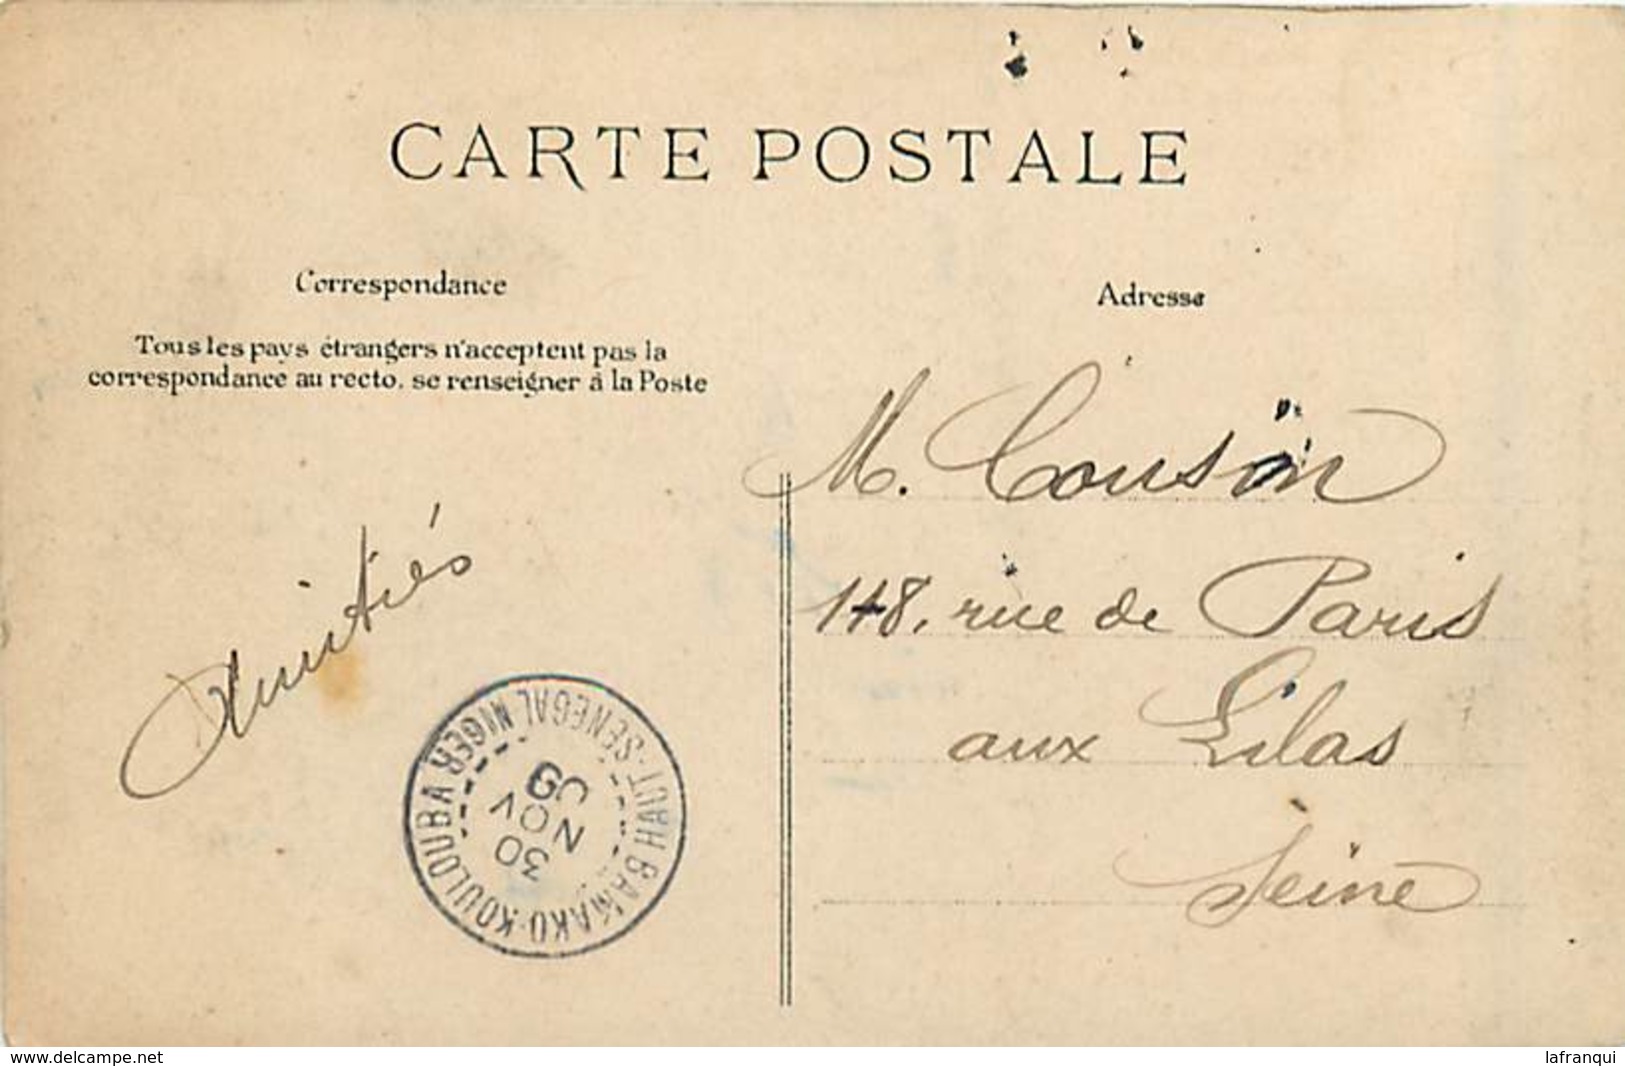 CARTE POSTALE
Correspondance
Tous les pays étrangers n'acceptent pas la
correspondance au recto. se renseigner à la Poste
Amitiés
BAMAKO-KOULOUBA
HAUT-SENEGAL NIGER
30
NOV
09
Adresse
M. Cousin
148, rue de Paris
aux Lilas
Seine
www.delcampe.net
lafranqui